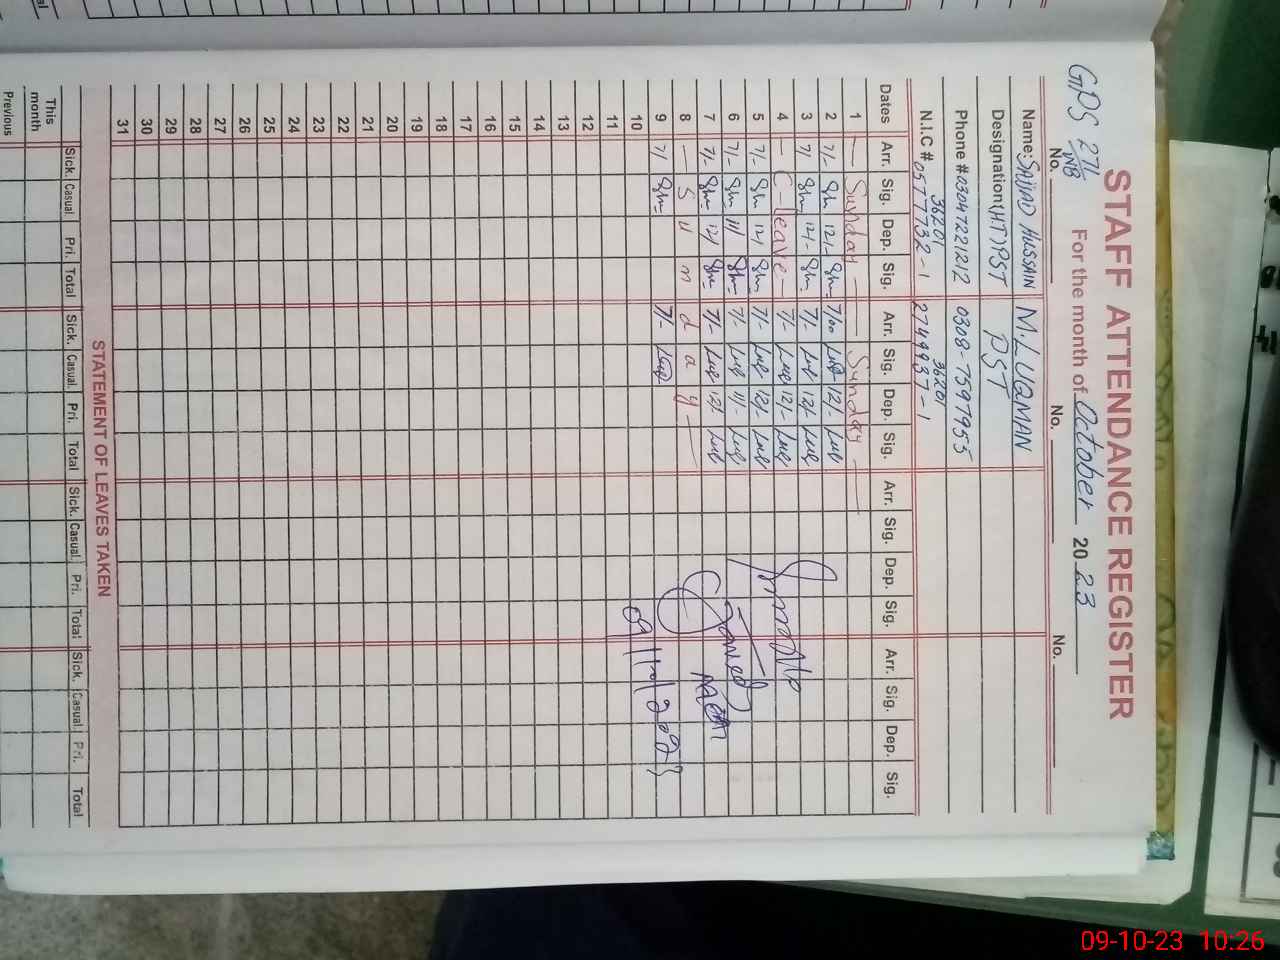 STAFF ATTENDANCE REGISTER
GPS 27L/WB For the month of October 2023
No. No. No.
Name: SAJJAD HUSSAIN M. LUQMAN
Designation (H.T) PST PST
Phone # 03047221212 0308-7597955
36201 36201
N.I.C # 0577732-1 2749937-1
Dates Arr. Sig. Dep. Sig. Arr. Sig. Dep. Sig. Arr. Sig. Dep. Sig. Arr. Sig. Dep. Sig.
1 — Sunday — — Sunday —
2 7/- 12/- 7/00 12/-
3 7/ 12/- 7/- 12/-
4 — C-leave — 7/- 12/-
5 7/- 12/ 7/- 12/-
6 7/- 11/ 7/- 11/-
7 7/- 12/ 7/- 12/-
8 — S u n d a y —
9 7/ 7/-
10
11
12
13
14
15
16
17
18
19
20
21
22
23
24
25
26
27
28
29
30
31
09/10/2023
STATEMENT OF LEAVES TAKEN
Sick. Casual. Pri. Total Sick. Casual. Pri. Total Sick. Casual. Pri. Total Sick. Casual. Pri. Total
This month
Previous
09-10-23 10:26